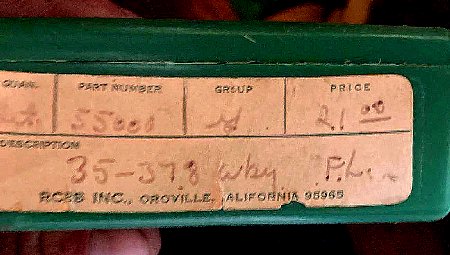 QUAN. PART NUMBER GROUP PRICE
55000 21 00
DESCRIPTION
35-378 Wby F.L.
RCBS INC., OROVILLE, CALIFORNIA 95965